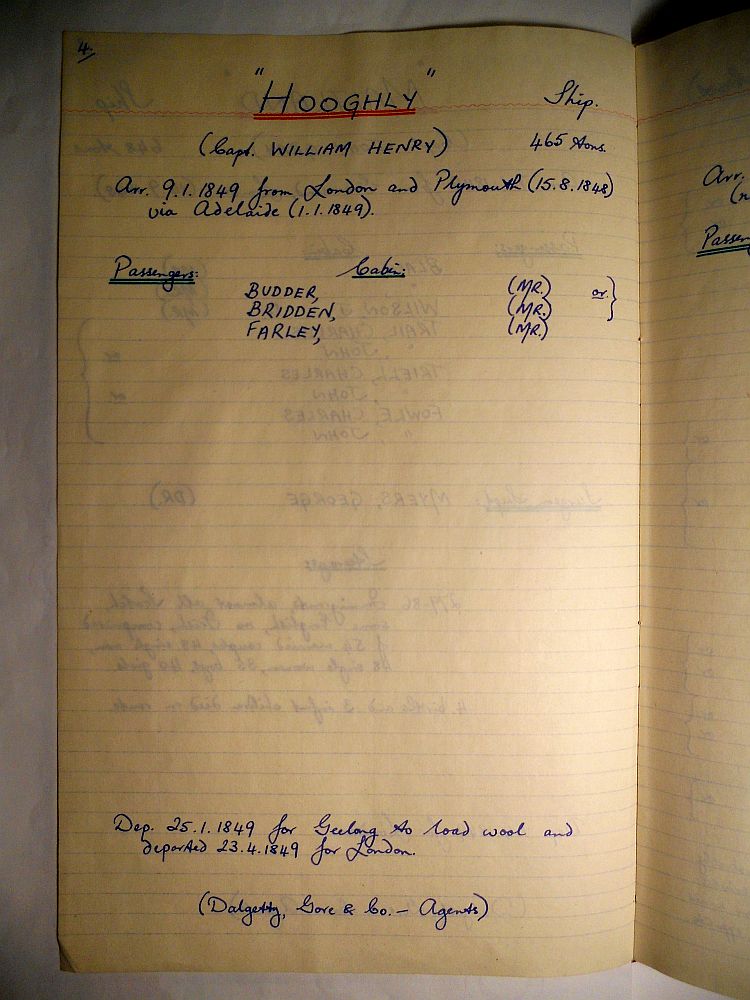 4.
"HOOGHLY" Ship.
(Capt. WILLIAM HENRY) 465 tons.
Arr. 9.1.1849 from London and Plymouth (15.8.1848)
via Adelaide (1.1.1849).
Passengers: Cabin:
BUDDER, (MR.) or }
BRIDDEN, (MR.)
FARLEY, (MR.)
Dep. 25.1.1849 for Geelong to load wool and
departed 23.4.1849 for London.
(Dalgetty, Gore & Co. — Agents)
Arr.